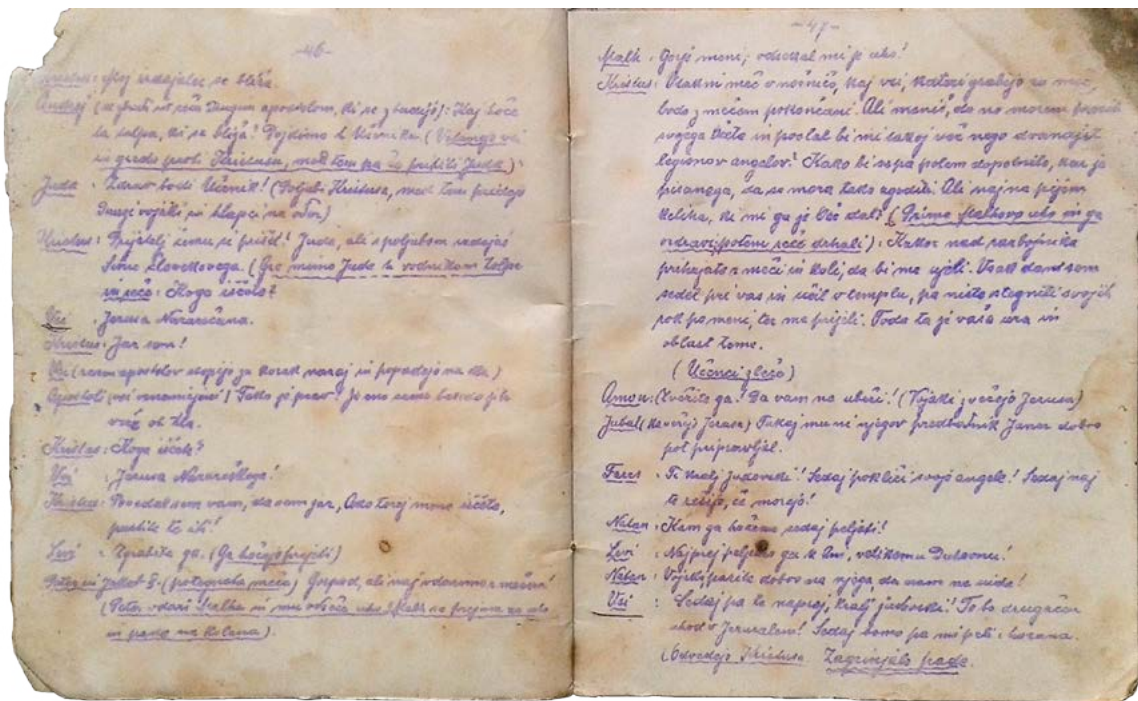 -46-
Kristus: Moj izdajalec se bliža.
Andrej (se obrne in reče drugim apostolom, ki se zbudijo): Kaj hoče
ta tolpa, ki se bliža? Pojdimo k Učeniku (
in gredo proti Kristusu, med tem pa že prihiti Juda):
Juda : Zdrav bodi Učenik! (Poljubi Kristusa, med tem pridejo
drugi vojaki in hlapci na oder)
Kristus: Prijatelj čemu si prišel? Juda, ali s poljubom izdajaš
Sinu človekovega. (Gre mimo Juda k vodnikom tolpe
in reče: Koga iščete?
Vsi : Jezusa Nazarečana.
Kristus: Jaz sem!
Vsi (razen apostolov stopijo za korak nazaj in popadejo na tla)
Apostoli (vsi) Tako je prav! Je eno samo besedo jih
vrže ob tla.
Kristus: Koga iščete?
Vsi : Jezusa Nazareškega!
Kristus: Povedal sem vam, da sem jaz, Ako torej mene iščete,
pustite te iti!
Levi : Zgrabite ga. (Ga hočejo prijeti)
Peter in Jakob S. (potegneta meča) Gospod, ali naj udarimo z mečem?
(Peter udari Malha in mu odseče uho, Malh se prijema za uho
in pade na kolena).
-47-
Malh : Gorje meni, odsekal mi je uho!
Kristus: Vtakni meč v nožnico, kaj vsi, kateri grabijo za meč,
bodo z mečem pokončani. Ali meniš, da ne morem prositi
svojega Očeta in poslal bi mi takoj več nego dvanajst
legionov angelov? Kako bi se pa potem dopolnilo, kar je
pisanega, da se mora tako zgoditi. Ali naj ne pijem
keliha, ki mi ga je Oče dal? (Prime Malhovo uho in ga
ozdravi, potem reče drhali): Kakor nad razbojnika
prihajate z meči in koli, da bi me ujeli. Vsak dan sem
sedel pri vas in učil v templu, pa niste stegnili svojih
rok po meni, ter me prijeli. Toda ta je vaša ura in
oblast teme.
(Učenci zbeže)
Amon: Zvežite ga! Da vam ne ubeži! (Vojaki zvežejo Jezusa)
Jubal ( Jezusa) Tukaj mu ni njegov predhodnik Janez dobro
pot pripravljal.
Feres : Ti kralj judovski! Sedaj pokliči svoje angele! Sedaj naj
te rešijo, če morejo!
Natan : Kam ga hočemo sedaj peljati?
Levi : Najprej peljemo ga k Ani, velikemu Duhovnu!
Natan : Vojaki, pazite dobro na njega da nam ne uide!
Vsi : Sedaj pa le naprej, kralj judovski! To bo drugačen
uhod v Jeruzalem! Sedaj bomo pa mi peli: hozana.
(Odvedejo Kristusa. Zagrinjalo pade.